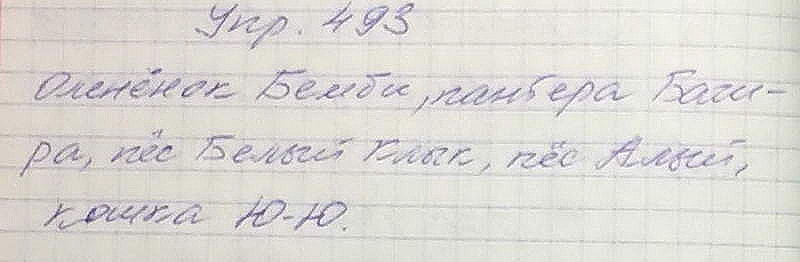 Упр. 493
Оленёнок Бемби, пантера Баги-
ра, пёс Белый Клык, пёс Алый,
кошка Ю-Ю.